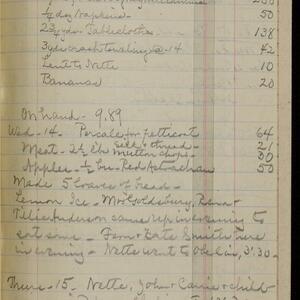 ½ doz Napkins 50
2½ yds. Tablecloth 138
3 yds crash toweling @ 14 42
Lent to Nette 10
Bananas 20
On hand - 9.89
Wed - 14 - Percale for petticoat 64
Silk & thread 21
Meat - 2½ lb mutton chops 30
Apples - ½ bu Red Astrachan 50
Made 5 loaves of bread -
Lemon Ice - Mrs Goldsbury, Rena &
Tillie Anderson came up in evening to
eat some - Fern & Kate Smith here
in evening - Nette went to Obelin, 3'.30 -
Thurs - 15 - Nette, John & Carrie & child